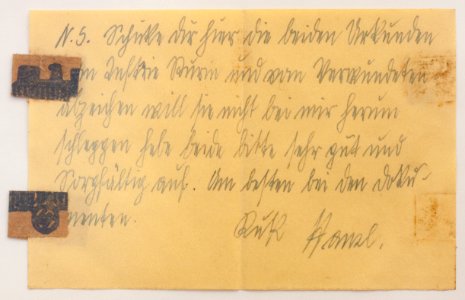 N. S. Schicke dir hier die beiden Urkunden
Infanterie Sturm und vom Verwundeten
abzeichen will sie nicht bei mir herum
schleppen hebe beide bitte sehr gut und
Sorgfältig auf. Am besten bei den Doku-
menten.
Hansl.